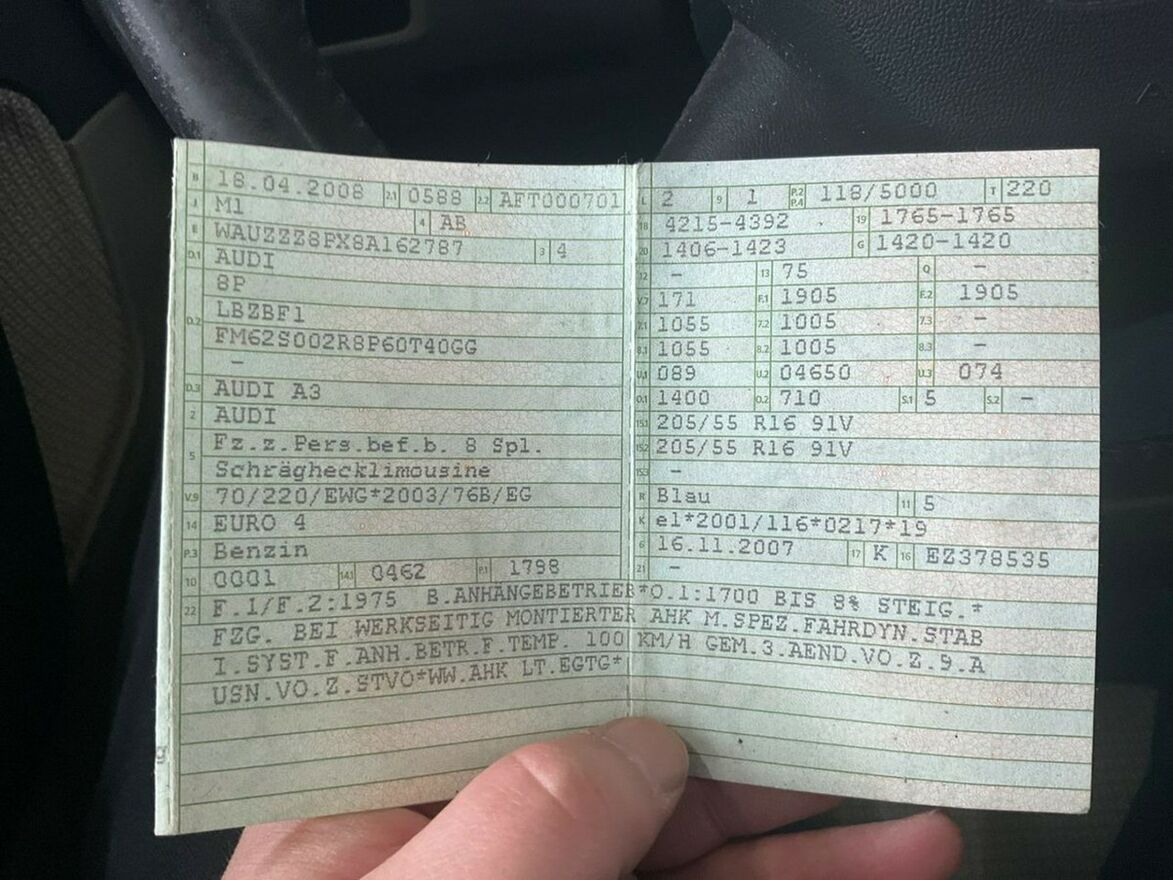 B 18.04.2008 2.1 0588 2.2 AFT000701
J M1 4 AB
E WAUZZZ8PX8A162787 3 4
D.1 AUDI
8P
D.2 LBZBF1
FM62S002R8P60T40GG
–
D.3 AUDI A3
2 AUDI
5 Fz.z.Pers.bef.b. 8 Spl.
Schräghecklimousine
V.9 70/220/EWG*2003/76B/EG
14 EURO 4
P.3 Benzin
10 0001 14.1 0462 P.1 1798
L 2 9 1 P.2 P.4 118/5000 T 220
18 4215-4392 19 1765-1765
20 1406-1423 G 1420-1420
12 – 13 75 Q –
V.7 171 F.1 1905 F.2 1905
7.1 1055 7.2 1005 7.3 –
8.1 1055 8.2 1005 8.3 –
U.1 089 U.2 04650 U.3 074
O.1 1400 O.2 710 S.1 5 S.2 –
15.1 205/55 R16 91V
15.2 205/55 R16 91V
15.3 –
R Blau 11 5
K e1*2001/116*0217*19
6 16.11.2007 17 K 16 EZ378535
21 –
22 F.1/F.2:1975 B.ANHÄNGEBETRIEB*O.1:1700 BIS 8% STEIG.*
FZG. BEI WERKSEITIG MONTIERTER AHK M.SPEZ.FAHRDYN.STAB
I.SYST.F.ANH.BETR.F.TEMP. 100 KM/H GEM.3.AEND.VO.Z.9.A
USN.VO.Z.STVO*WW.AHK LT.EGTG*